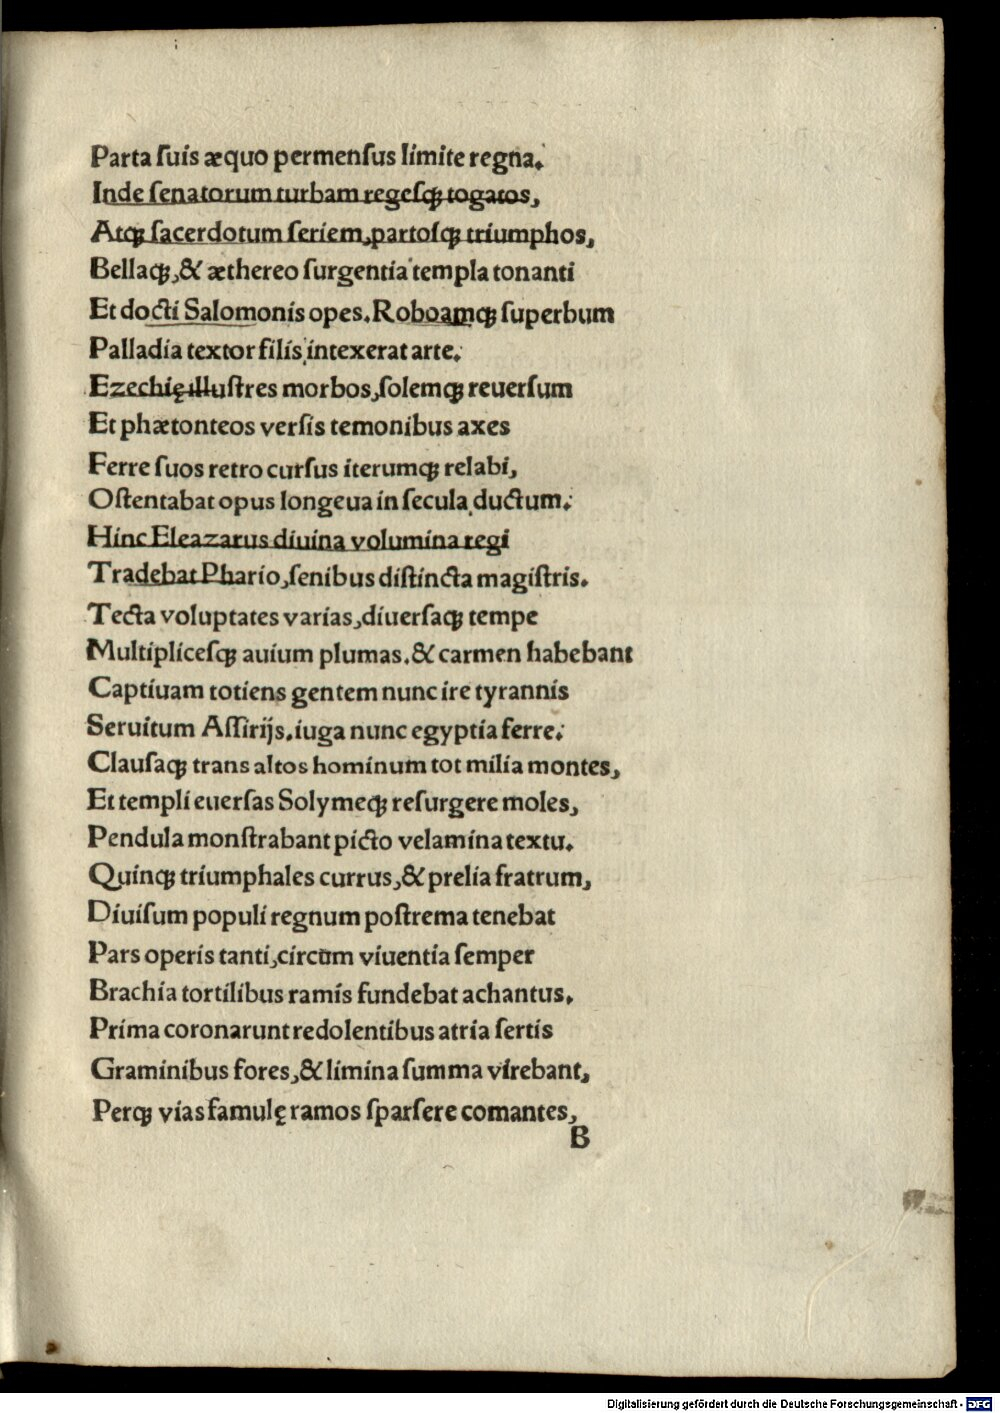 Parta ſuis æquo permenſus limite regna.
Inde ſenatorum turbam regeſqꝫ togatos,
Atqꝫ ſacerdotum ſeriem,partoſqꝫ triumphos,
Bellaqꝫ,& æthereo ſurgentia templa tonanti
Et docti Salomonis opes.Roboamqꝫ ſuperbum
Palladia textor filis intexerat arte.
Ezechię illuſtres morbos,ſolemqꝫ reuerſum
Et phætonteos verſis temonibus axes
Ferre ſuos retro curſus iterumqꝫ relabi,
Oſtentabat opus longeua in ſecula ductum.
Hinc Eleazarus diuina volumina regi
Tradebat Phario,ſenibus diſtincta magiſtris.
Tecta voluptates varias,diuerſaqꝫ tempe
Multipliceſqꝫ auium plumas.& carmen habebant
Captiuam totiens gentem nunc ire tyrannis
Seruitum Aſſirijs.iuga nunc egyptia ferre.
Clauſaqꝫ trans altos hominum tot milia montes,
Et templi euerſas Solymeqꝫ reſurgere moles,
Pendula monſtrabant picto velamina textu.
Quinqꝫ triumphales currus,& prelia fratrum,
Diuiſum populi regnum poſtrema tenebat
Pars operis tanti,circum viuentia ſemper
Brachia tortilibus ramis fundebat achantus.
Prima coronarunt redolentibus atria ſertis
Graminibus fores,& limina ſumma virebant,
Perqꝫ vias famulę ramos ſparſere comantes,
B
Digitalisierung gefördert durch die Deutsche Forschungsgemeinschaft - DFG